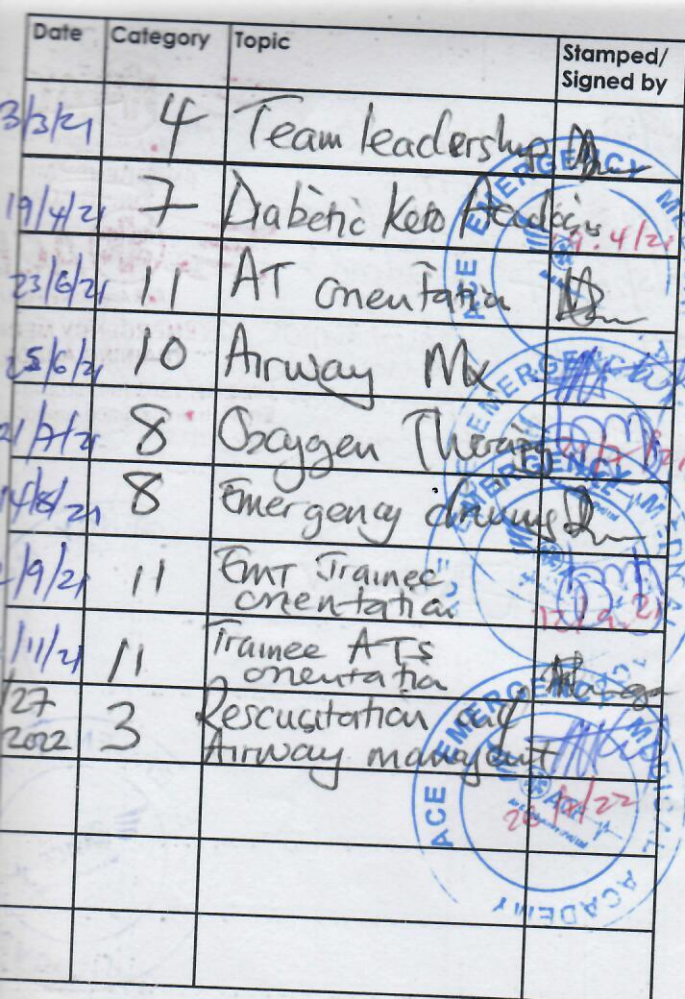 Date Category Topic Stamped/
Signed by
3/3/21 4 Team leadership
19/4/21 7 Diabetic Keto Acidosis
19.4/21
23/6/21 11 AT orientation
25/6/21 10 Airway Mx
21/7/21 8 Oxygen Therapy
14/8/21 8 Emergency driving
/9/21 11 EMT Trainee
orientation
12/9.21
/11/21 11 Trainee ATs
orientation
/27
2022 3 Rescusitation and
Airway managent
/22
ACE EMERGENCY MEDICAL ACADEMY
ACE EMERGENCY MEDICAL
EMERGENCY MEDICAL
ACE EMERGENCY MEDICAL ACADEMY